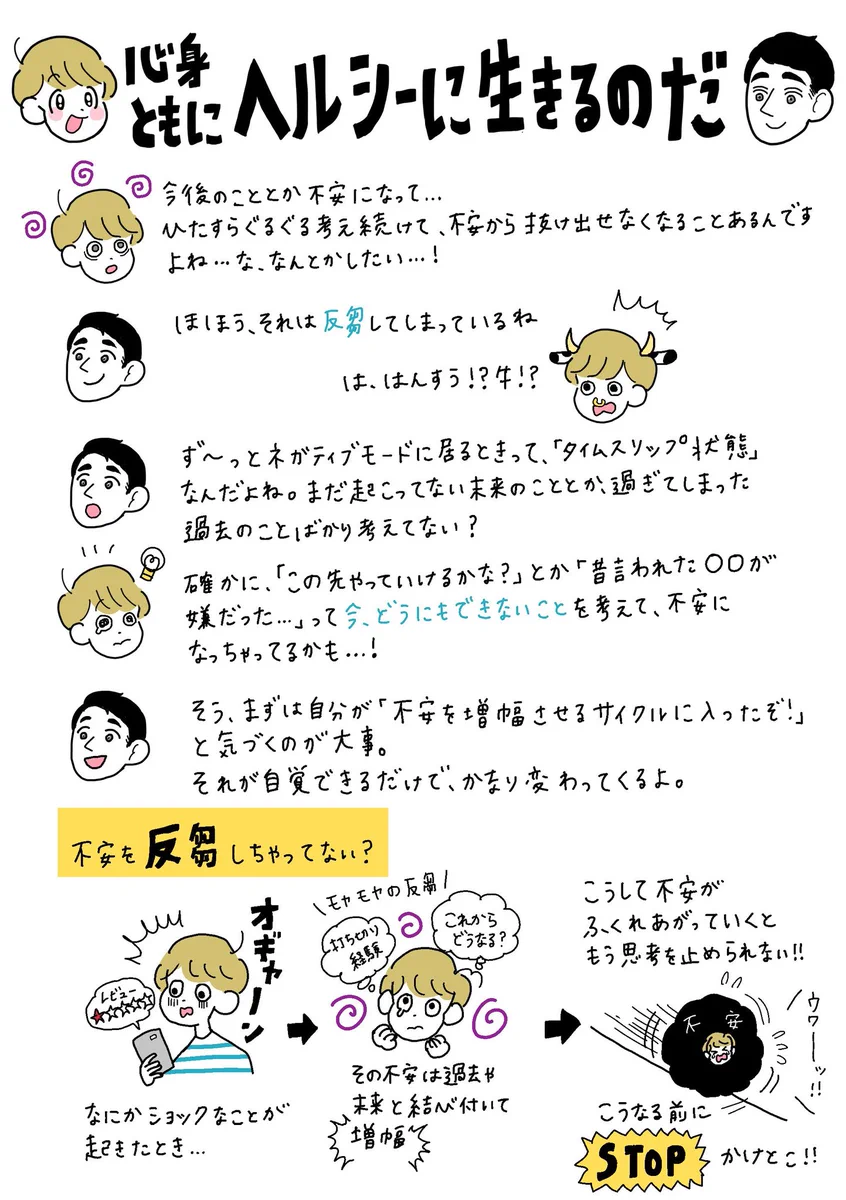 心身
ともに ヘルシーに生きるのだ
今後のこととか不安になって…
ひたすらぐるぐる考え続けて、不安から抜け出せなくなることあるんです
よね…な、なんとかしたい…！
ほほう、それは反芻してしまっているね
は、はんすう!?牛!?
ず〜っとネガティブモードに居るときって、「タイムスリップ状態」
なんだよね。まだ起こってない未来のこととか、過ぎてしまった
過去のことばかり考えてない？
確かに、「この先やっていけるかな？」とか「昔言われた〇〇が
嫌だった…」って今、どうにもできないことを考えて、不安に
なっちゃってるかも…！
そう、まずは自分が「不安を増幅させるサイクルに入ったぞ！」
と気づくのが大事。
それが自覚できるだけで、かなり変わってくるよ。
不安を反芻しちゃってない？
オギャーン
レビュー
★☆☆☆☆
なにかショックなことが
起きたとき…
モヤモヤの反芻
これから
どうなる？
経験
その不安は過去や
未来と結び付いて
増幅
こうして不安が
ふくれあがっていくと
もう思考を止められない!!
不安
ウワーッ!!
こうなる前に
STOP かけとこ!!